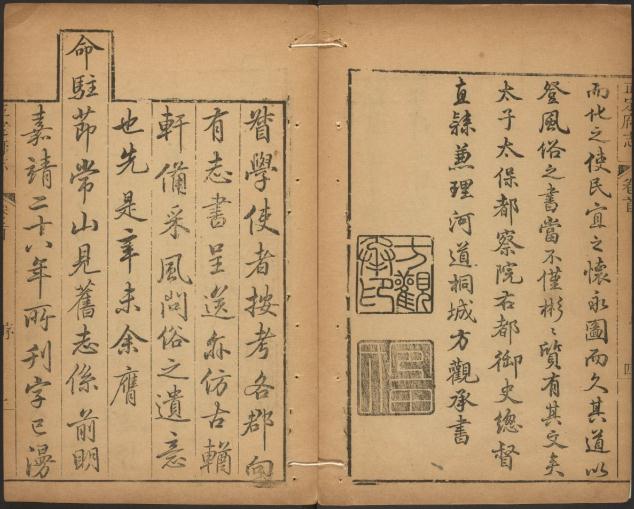 正定府志 卷首 四
而化之使民宜之懷永圖而久其道以
登風俗之書當不僅彬〻質有其文矣
太子太保都察院右都御史總督
直隸兼理河道桐城方觀承書
方觀承印
督學使者按考各郡向
有志書呈送亦仿古輶
軒備采風問俗之遺意
也先是辛未余膺
命駐節常山見舊志係前明
嘉靖二十八年所刊字已漫
序